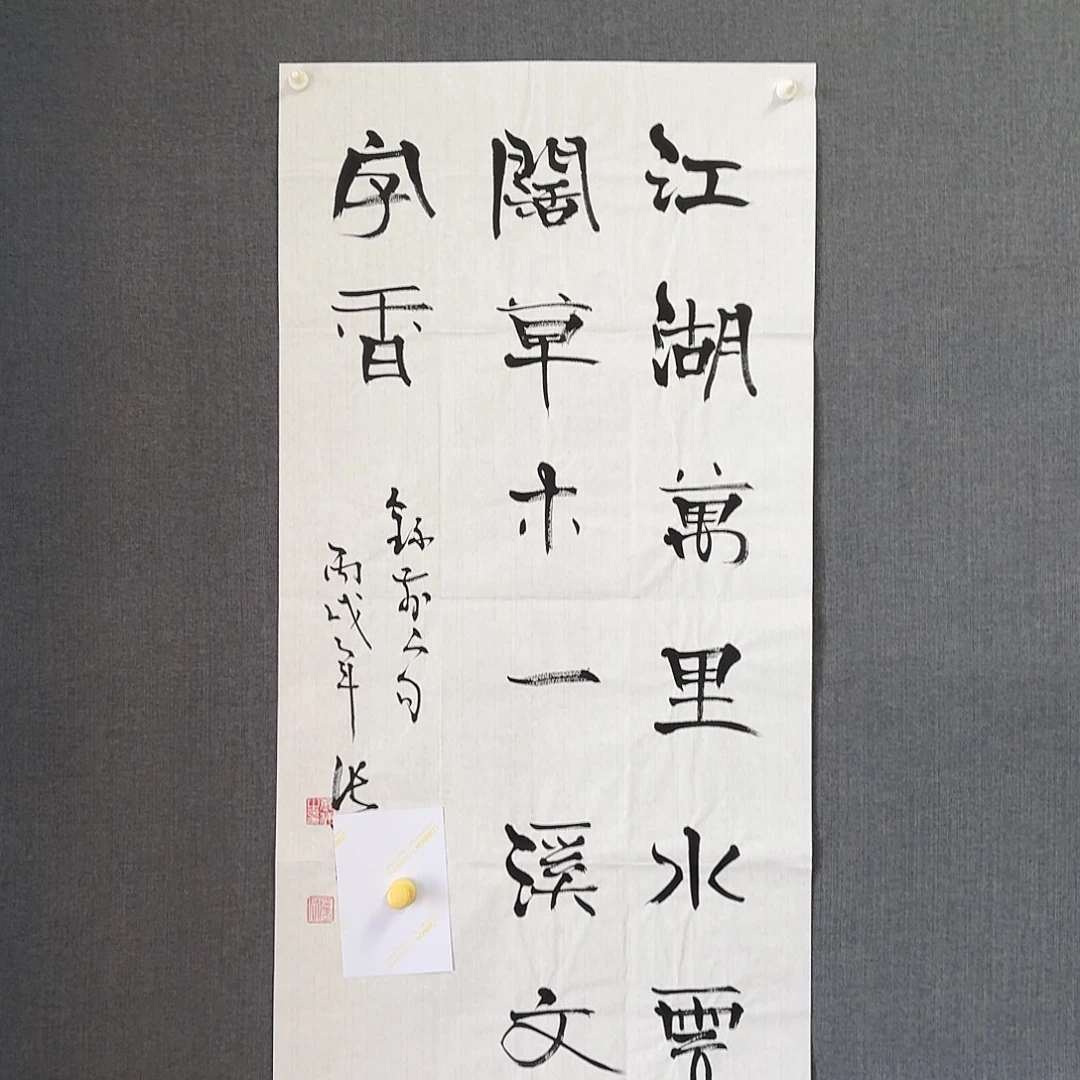 江湖萬里水雲
闊草木一溪文
字香
錄前人句
丙戌年 張